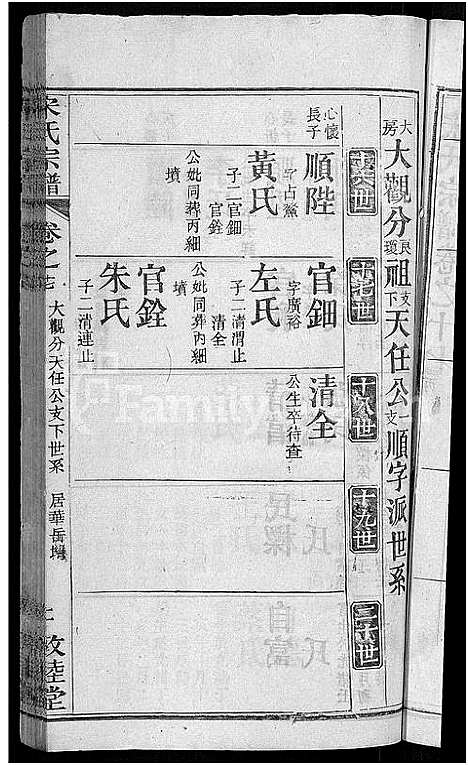 大房
大觀分良瓊祖支下天任公一支順字派世系
十六世
十七世
十八世
十九世
二十世
心懷長子
順陛
字占黨
黃氏
子二官鈿官銓
公妣同葬丙細墳
官鈿
字廣裕
左氏
子二清渭止清全
公妣同葬內細墳
官銓
朱氏
子二清連止
清全
公生卒待查
宋氏宗譜
卷之
大觀分天任公支下世系
居華岳塘
敦睦堂